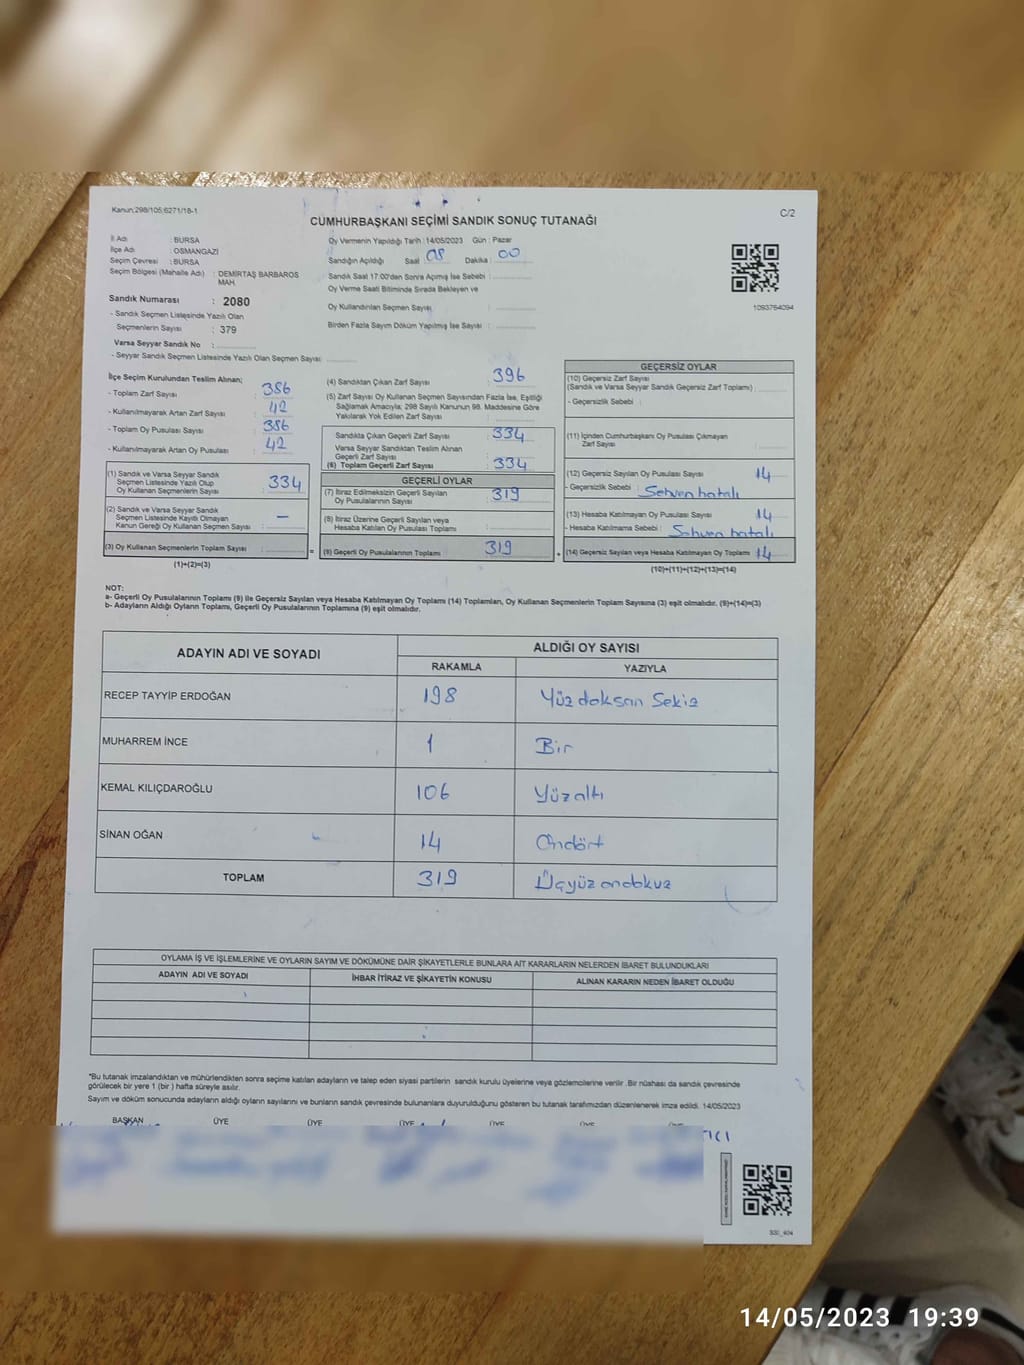 Kanun;298/105;6271/18-1
C/2
CUMHURBAŞKANI SEÇİMİ SANDIK SONUÇ TUTANAĞI
İl Adı : BURSA
İlçe Adı : OSMANGAZİ
Seçim Çevresi : BURSA
Seçim Bölgesi (Mahalle Adı) : DEMİRTAŞ BARBAROS MAH.
Sandık Numarası : 2080
- Sandık Seçmen Listesinde Yazılı Olan
Seçmenlerin Sayısı : 379
Varsa Seyyar Sandık No :
- Seyyar Sandık Seçmen Listesinde Yazılı Olan Seçmen Sayısı
Oy Vermenin Yapıldığı Tarih : 14/05/2023 Gün : Pazar
Sandığın Açıldığı Saat 08 Dakika : 00
Sandık Saat 17:00'den Sonra Açılmış İse Sebebi :
Oy Verme Saati Bitiminde Sırada Bekleyen ve
Oy Kullandırılan Seçmen Sayısı :
Birden Fazla Sayım Döküm Yapılmış İse Sayısı :
1093764094
İlçe Seçim Kurulundan Teslim Alınan;
- Toplam Zarf Sayısı : 386
- Kullanılmayarak Artan Zarf Sayısı : 42
- Toplam Oy Pusulası Sayısı : 386
- Kullanılmayarak Artan Oy Pusulası : 42
(1) Sandık ve Varsa Seyyar Sandık
Seçmen Listesinde Yazılı Olup
Oy Kullanan Seçmenlerin Sayısı : 334
(2) Sandık ve Varsa Seyyar Sandık
Seçmen Listesinde Kayıtlı Olmayan
Kanun Gereği Oy Kullanan Seçmen Sayısı : –
(3) Oy Kullanan Seçmenlerin Toplam Sayısı :
(1)+(2)=(3)
(4) Sandıktan Çıkan Zarf Sayısı : 396
(5) Zarf Sayısı Oy Kullanan Seçmen Sayısından Fazla İse, Eşitliği
Sağlamak Amacıyla; 298 Sayılı Kanunun 98. Maddesine Göre
Yakılarak Yok Edilen Zarf Sayısı :
Sandıkta Çıkan Geçerli Zarf Sayısı : 334
Varsa Seyyar Sandıktan Teslim Alınan
Geçerli Zarf Sayısı :
(6) Toplam Geçerli Zarf Sayısı : 334
GEÇERLİ OYLAR
(7) İtiraz Edilmeksizin Geçerli Sayılan
Oy Pusulalarının Sayısı : 319
(8) İtiraz Üzerine Geçerli Sayılan veya
Hesaba Katılan Oy Pusulası Toplamı :
= (9) Geçerli Oy Pusulalarının Toplamı : 319
GEÇERSİZ OYLAR
(10) Geçersiz Zarf Sayısı
(Sandık ve Varsa Seyyar Sandık Geçersiz Zarf Toplamı) :
- Geçersizlik Sebebi :
(11) İçinden Cumhurbaşkanı Oy Pusulası Çıkmayan
Zarf Sayısı :
(12) Geçersiz Sayılan Oy Pusulası Sayısı : 14
- Geçersizlik Sebebi : Sehven hatalı
(13) Hesaba Katılmayan Oy Pusulası Sayısı : 14
- Hesaba Katılmama Sebebi : Sehven hatalı
+ (14) Geçersiz Sayılan veya Hesaba Katılmayan Oy Toplamı : 14
(10)+(11)+(12)+(13)=(14)
NOT:
a- Geçerli Oy Pusulalarının Toplamı (9) ile Geçersiz Sayılan veya Hesaba Katılmayan Oy Toplamı (14) Toplamları, Oy Kullanan Seçmenlerin Toplam Sayısına (3) eşit olmalıdır. (9)+(14)=(3)
b- Adayların Aldığı Oyların Toplamı, Geçerli Oy Pusulalarının Toplamına (9) eşit olmalıdır.
ADAYIN ADI VE SOYADI ALDIĞI OY SAYISI
RAKAMLA YAZIYLA
RECEP TAYYİP ERDOĞAN 198 Yüzdoksan Sekiz
MUHARREM İNCE 1 Bir
KEMAL KILIÇDAROĞLU 106 Yüzaltı
SİNAN OĞAN 14 Ondört
TOPLAM 319 Üçyüzondokuz
OYLAMA İŞ VE İŞLEMLERİNE VE OYLARIN SAYIM VE DÖKÜMÜNE DAİR ŞİKAYETLERLE BUNLARA AİT KARARLARIN NELERDEN İBARET BULUNDUKLARI
ADAYIN ADI VE SOYADI İHBAR İTİRAZ VE ŞİKAYETİN KONUSU ALINAN KARARIN NEDEN İBARET OLDUĞU
*Bu tutanak imzalandıktan ve mühürlendikten sonra seçime katılan adayların ve talep eden siyasi partilerin sandık kurulu üyelerine veya gözlemcilerine verilir. Bir nüshası da sandık çevresinde
görülecek bir yere 1 (bir) hafta süreyle asılır.
Sayım ve döküm sonucunda adayların aldığı oyların sayılarını ve bunların sandık çevresinde bulunanlara duyurulduğunu gösteren bu tutanak tarafımızdan düzenlenerek imza edildi. 14/05/2023
BAŞKAN ÜYE ÜYE ÜYE ÜYE
14/05/2023 19:39